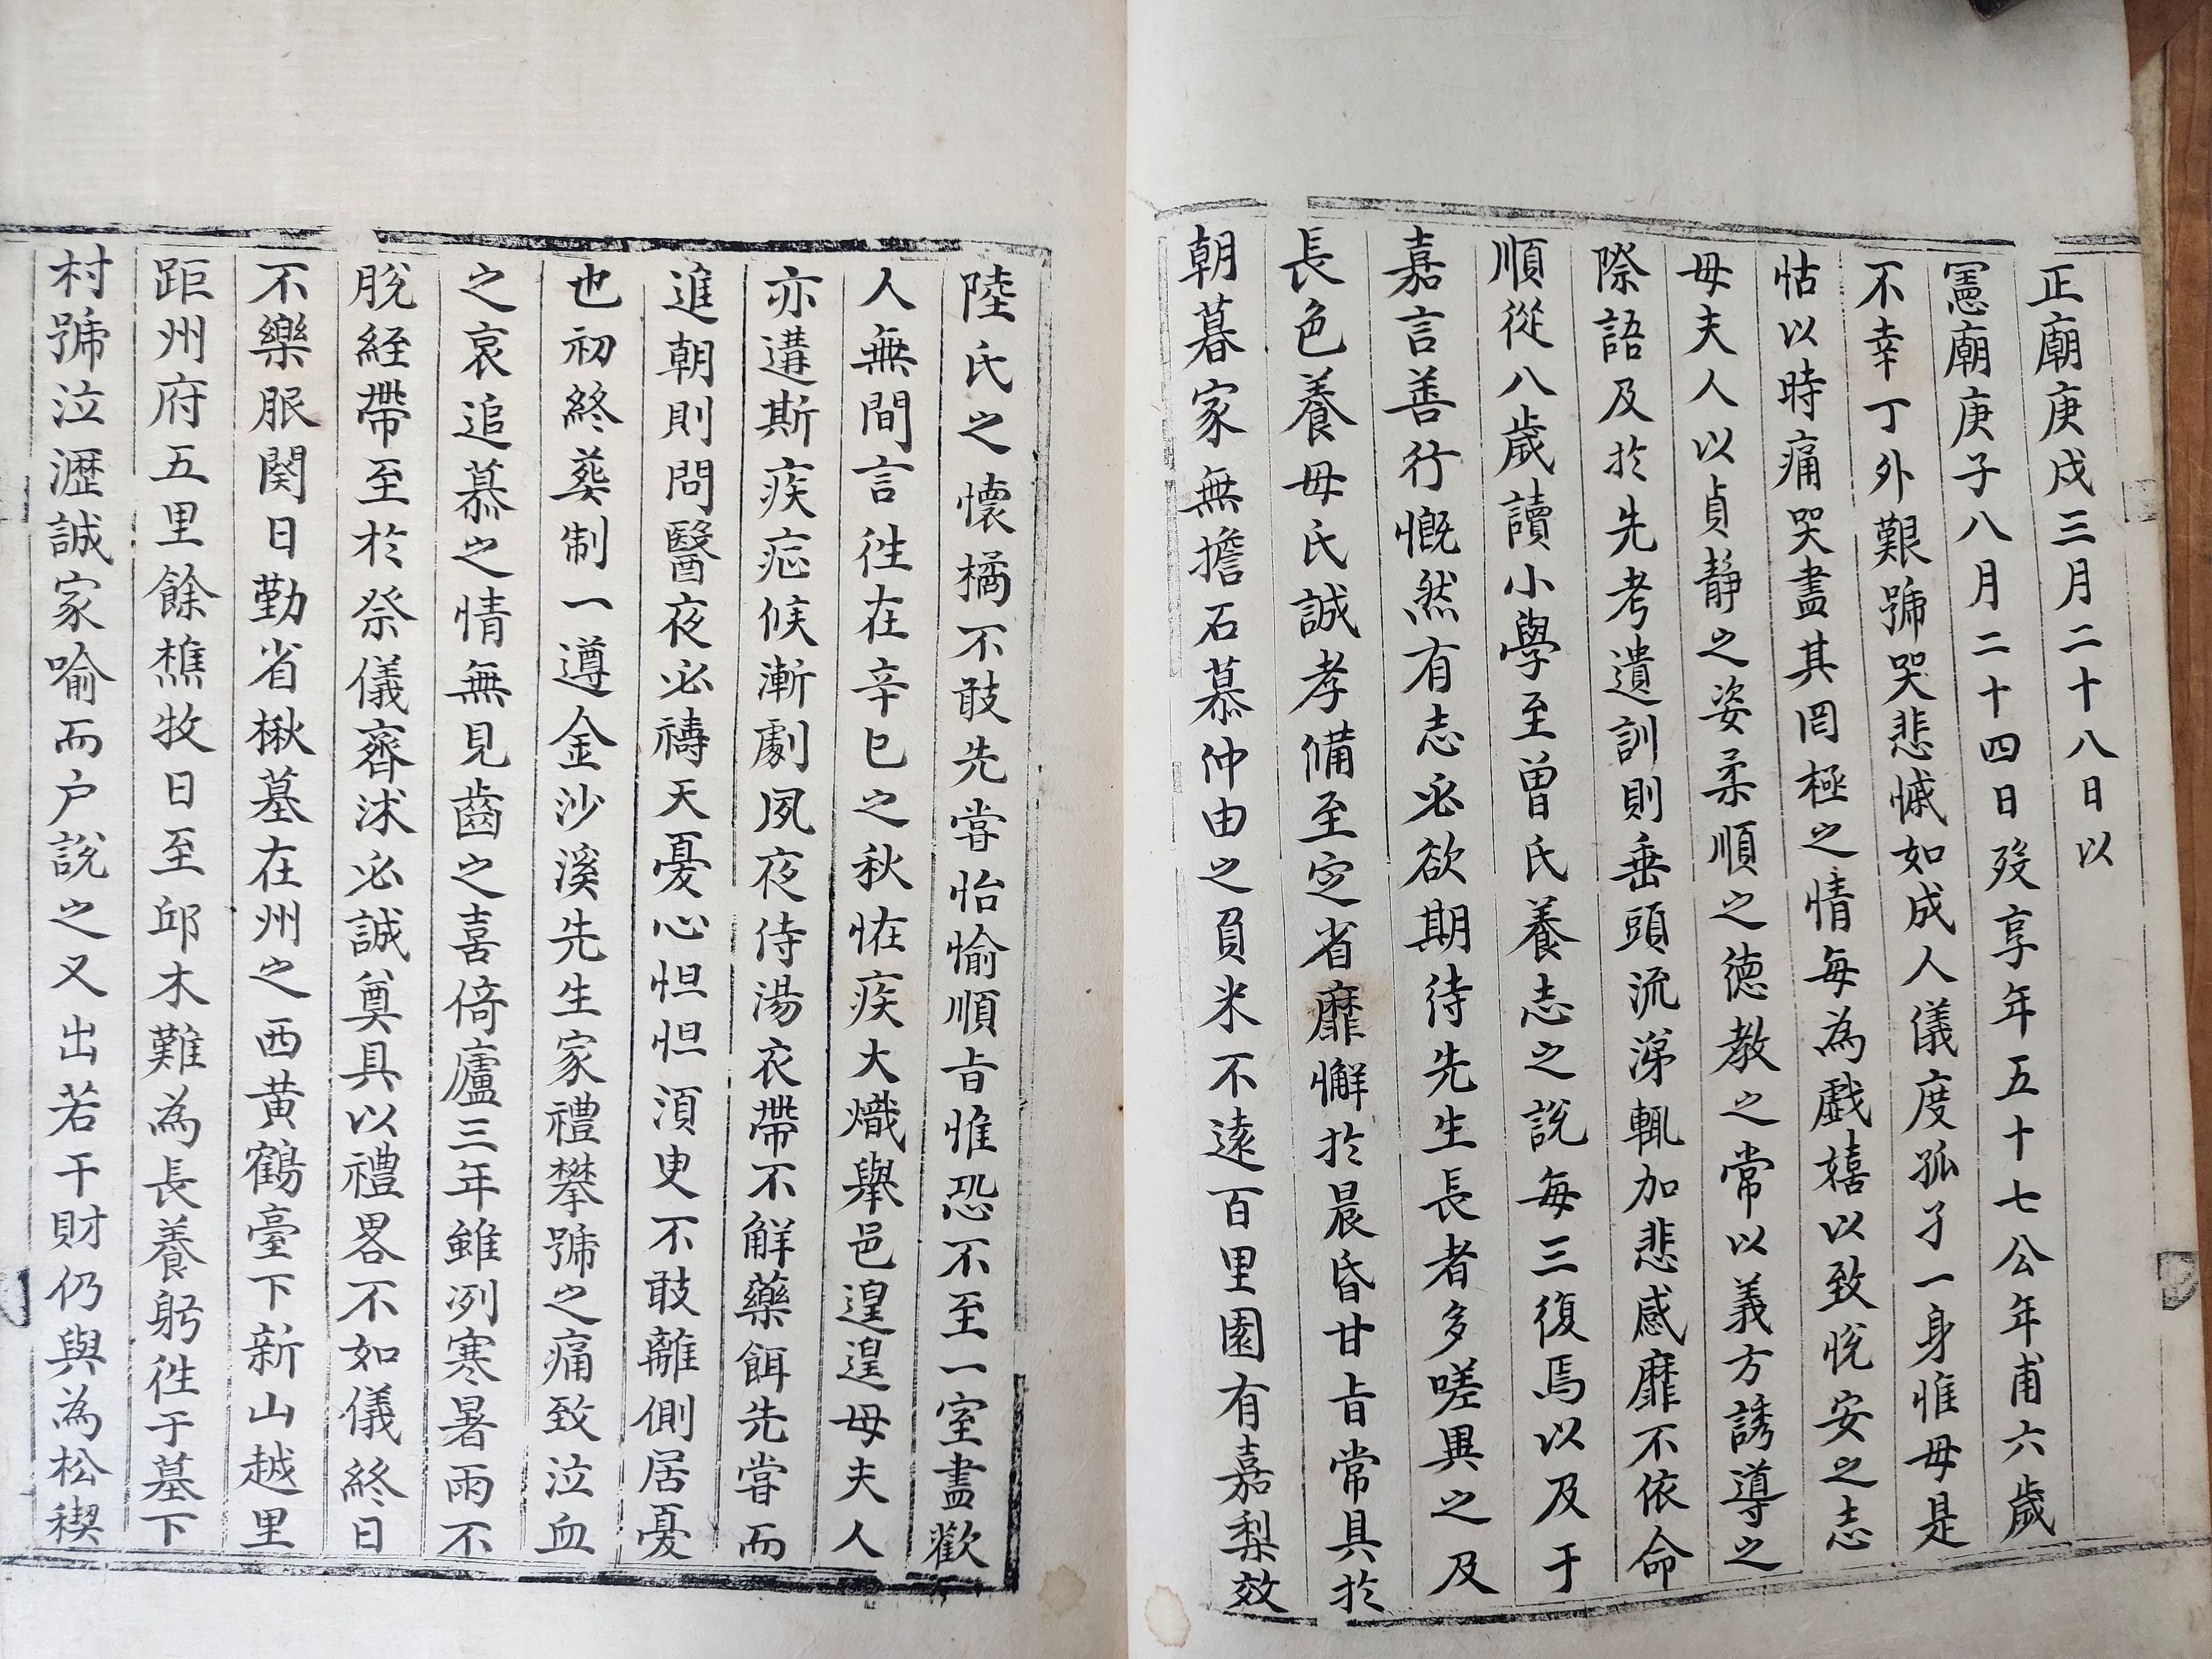 正廟庚戌三月二十八日以
憲廟庚子八月二十四日歿享年五十七公年甫六歲
不幸丁外艱號哭悲慽如成人儀度孤孑一身惟母是
怙以時痛哭盡其罔極之情每為戱嬉以致悅安之志
母夫人以貞靜之姿柔順之德教之常以義方誘導之
際語及於先考遺訓則垂頭流涕輒加悲感靡不依命
順從八歲讀小學至曾氏養志之說每三復焉以及于
嘉言善行慨然有志必欲期待先生長者多嗟異之及
長色養母氏誠孝備至定省靡懈於晨昏甘旨常具於
朝暮家無擔石慕仲由之負米不遠百里園有嘉梨效
陸氏之懷橘不敢先嘗怡愉順旨惟恐不至一室盡歡
人無間言徃在辛巳之秋恠疾大熾擧邑遑遑母夫人
亦遘斯疾症候漸劇夙夜侍湯衣帶不解藥餌先嘗而
進朝則問醫夜必禱天憂心怛怛湏臾不敢離側居憂
也初終葬制一遵金沙溪先生家禮攀號之痛致泣血
之哀追慕之情無見齒之喜倚廬三年雖冽寒暑雨不
脫絰帶至於祭儀齊浗必誠奠具以禮畧不如儀終日
不樂服闋日勤省楸墓在州之西黃鶴臺下新山越里
距州府五里餘樵牧日至邱木難為長養躬徃于墓下
村號泣瀝誠家喻而户說之又出若干財仍與為松稧